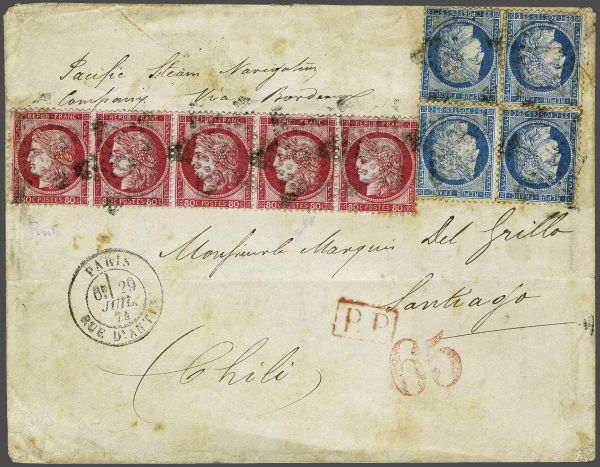 Pacific Steam Navigation
Company Via Bordeaux
REPUB. FRANC.
80C POSTES 80C
80C POSTES 80C
80C POSTES 80C
80C POSTES 80C
80C POSTES 80C
Monsieur le Marquis Del Grillo
Santiago
Chili
PARIS
6E 29
JUIL.
74
RUE D'ANTIN
P.P.
65